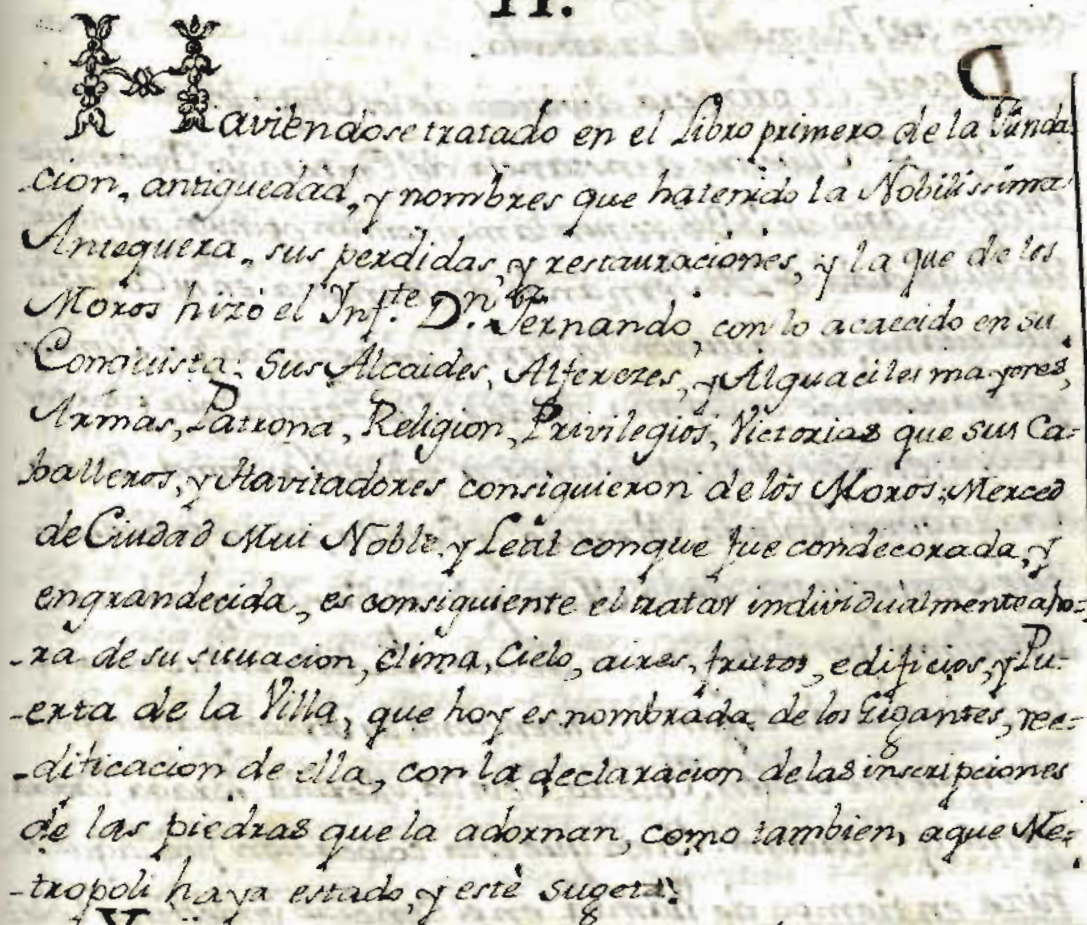 II.
Haviendose tratado en el Libro primero de la Funda
cion, antiguedad, y nombres que ha tenido la Nobilissima
Antequera, sus perdidas, y restauraciones, y la que de los
Moros hizo el Ynf.te D.n Fernando, con lo acaecido en su
Conquista: Sus Alcaides, Alferezes, y Alguaciles mayores,
Armas, Patrona, Religion, Privilegios, Victorias que sus Ca-
balleros, y Havitadores consiguieron de los Moros; Merced
de Ciudad Mui Noble, y Leal con que fue condecorada, y
engrandecida, es consiguiente el tratar individualmente aho=
-ra de su situacion, clima, Cielo, aires, frutos, edificios, y Pu-
-erta de la Villa, que hoy es nombrada de los Gigantes, ree=
-dificacion de ella, con la declaracion de las inscripciones
de las piedras que la adornan, como tambien, a que Me=
-tropoli haya estado, y estè sugeta.